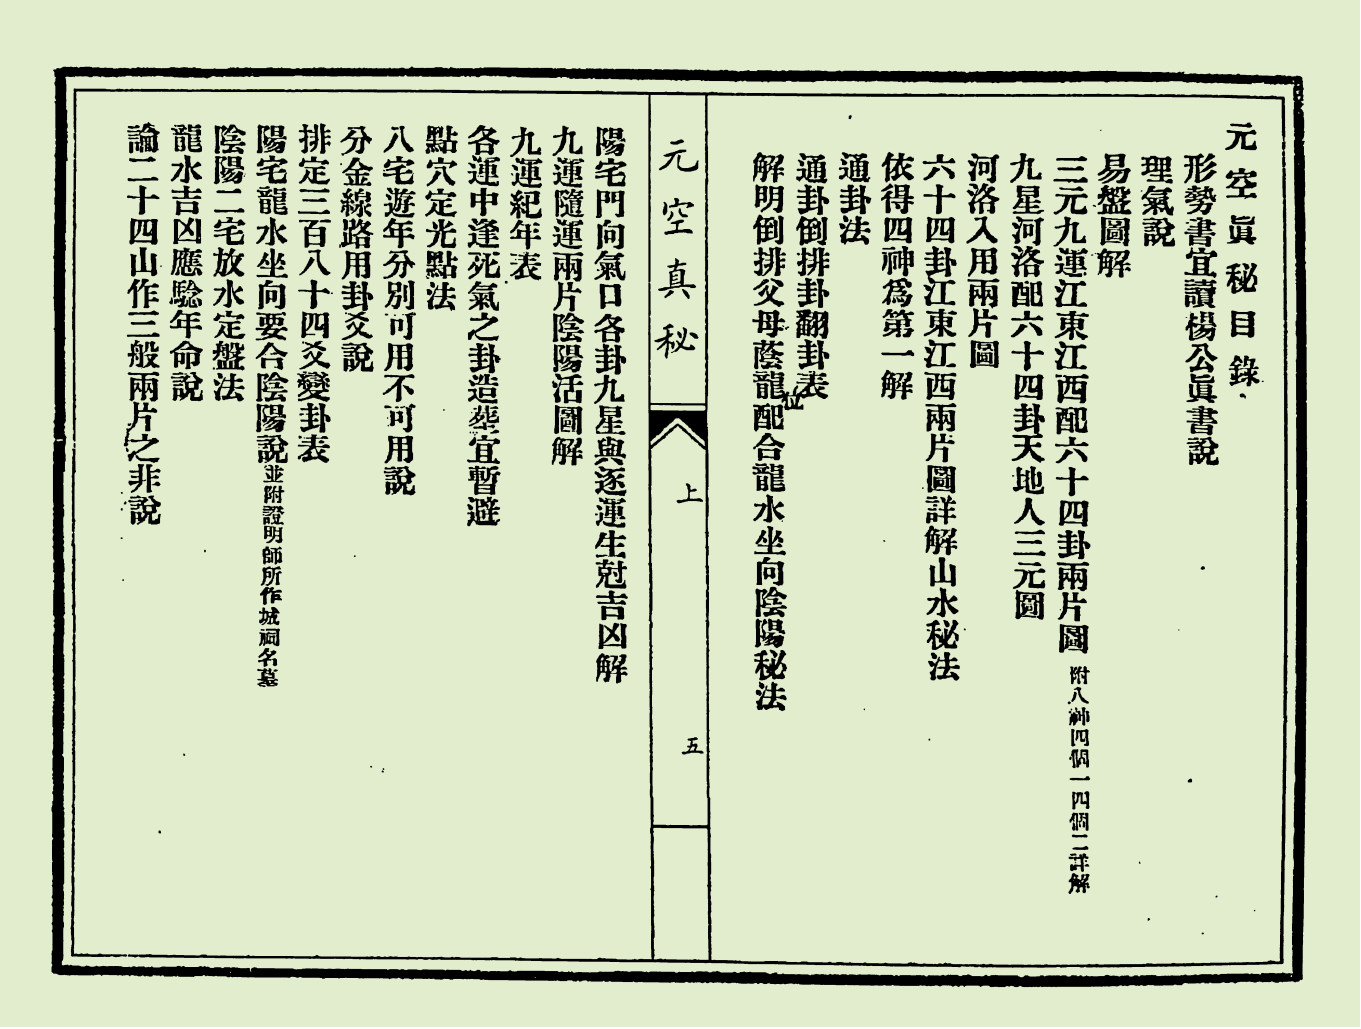 元空眞秘目錄
形勢書宜讀楊公眞書說
理氣說
易盤圖解
三元九運江東江西配六十四卦兩片圖 附八神四個一四個二詳解
九星河洛配六十四卦天地人三元圖
河洛入用兩片圖
六十四卦江東江西兩片圖詳解山水秘法
依得四神爲第一解
通卦法
通卦倒排卦翻卦表
解明倒排父母蔭龍位配合龍水坐向陰陽秘法
元空真秘
上
五
陽宅門向氣口各卦九星與逐運生尅吉凶解
九運隨運兩片陰陽活圖解
九運紀年表
各運中逢死氣之卦造葬宜暫避
點穴定光點法
八宅遊年分別可用不可用說
分金線路用卦爻說
排定三百八十四爻變卦表
陽宅龍水坐向要合陰陽說 並附證明師所作城祠名墓
陰陽二宅放水定盤法
龍水吉凶應騐年命說
論二十四山作三般兩片之非說